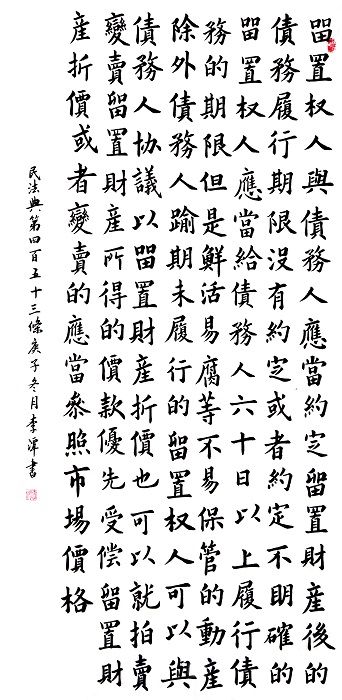 㽞置权人與債務人應當約定留置財産後的
債務履行期限没有約定或者約定不明確的
㽞置权人應當給債務人六十日以上履行債
務的期限但是鮮活易腐等不易保管的動産
除外債務人踰期未履行的留置权人可以與
債務人协議以㽞置財産折價也可以就拍賣
變賣留置財産所得的價款優先受偿留置財
産折價或者變賣的應當參照市場價格
民法典第四百五十三條庚子冬月李書